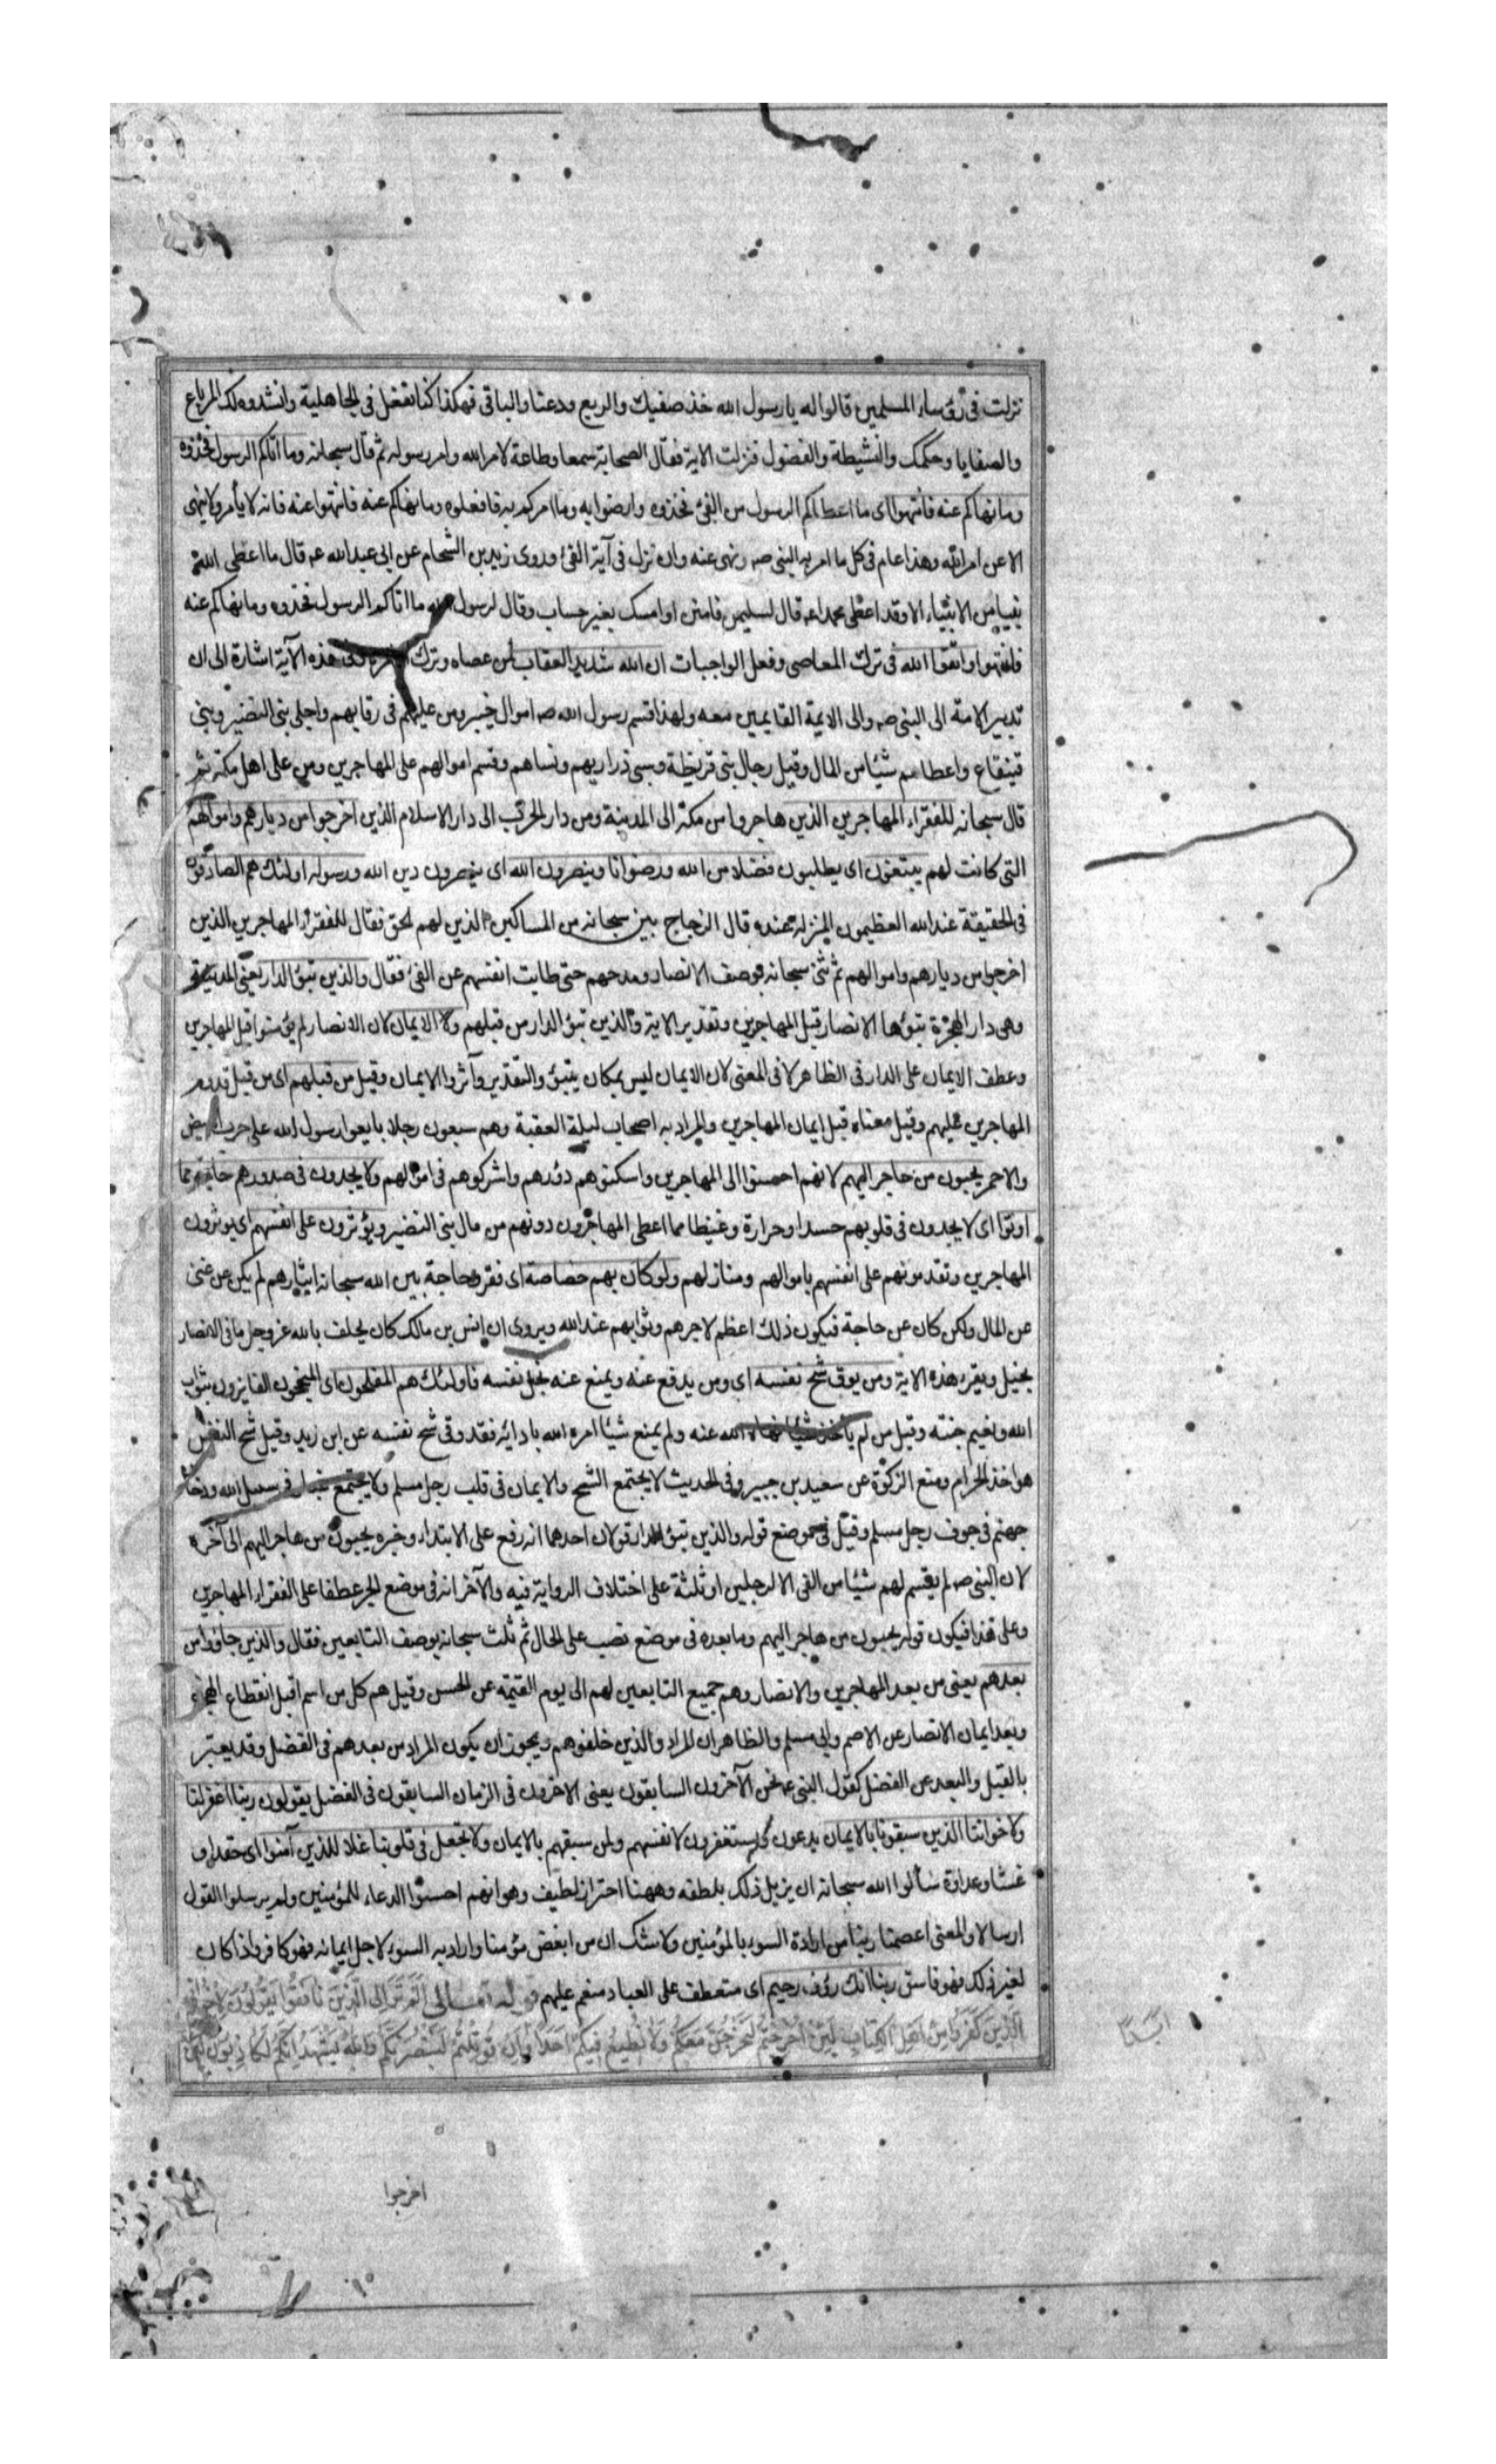 نزلت فى رؤساء المسلمين قالوا له يا رسول الله خذ صفيك والربع ودعنا والباقى فهكذا كنا نفعل فى الجاهلية وانشدوه لك المرباع
والصفايا وحكمك والنشيطة والفضول فنزلت الاية فقال الصحابة سمعا وطاعة لامر الله وامر رسوله ثم قال سبحانه وما اتاكم الرسول فخذوه
وما نهاكم عنه فانتهوا اى ما اعطاكم الرسول من الفئ فخذوه وارضوا به وما امركم به فافعلوه وما نهاكم عنه فانتهوا عنه فانه لا يأمر ولا ينهى
الا عن امر الله وهذا عام فى كل ما امر به النبى صه ونهى عنه وان نزل فى آية الفئ وروى زيد بن الشحام عن ابى عبد الله عه قال ما اعطى الله
نبيا من الانبياء الا وقد اعطى محمدا عه قال لسليمن فامنن او امسك بغير حساب وقال لرسول الله ما اتاكم الرسول فخذوه وما نهاكم عنه
فانتهوا واتقوا الله فى ترك المعاصى وفعل الواجبات ان الله شديد العقاب لمن عصاه وترك وفى هذه الآية اشارة الى ان
تدبير الامة الى النبى صه والى الايمة القايمين معه ولهذا قسم رسول الله صه اموال خيبر ومن عليهم فى رقابهم واجلى بنى النضير وبنى
قينقاع واعطاهم شيئا من المال وقتل رجال بنى قريظة وسبى ذراريهم ونساهم وقسم اموالهم على المهاجرين ومن على اهل مكة ثم
قال سبحانه للفقراء المهاجرين الذين هاجروا من مكة الى المدينة ومن دار الحرب الى دار الاسلام الذين اخرجوا من ديارهم واموالهم
التى كانت لهم يبتغون اى يطلبون فضلا من الله ورضوانا وينصرون الله اى ينصرون دين الله ورسوله اولئك هم الصادقون
فى الحقيقة عند الله العظيمون المنزلة عنده قال الزجاج بين سبحانه من المساكين الذين لهم الحق فقال للفقراء المهاجرين الذين
اخرجوا من ديارهم واموالهم ثم ثنى سبحانه بوصف الانصار ومدحهم حتى طابت انفسهم عن الفئ فقال والذين تبوؤ الدار يعنى المدينة
وهى دار الهجرة تبوؤها الانصار قبل المهاجرين وتقدير الاية والذين تبوؤ الدار من قبلهم والايمان لان الانصار لم يؤمنوا قبل المهاجرين
وعطف الايمان على الدار فى الظاهر لا فى المعنى لان الايمان ليس بمكان يتبوؤ والتقدير وآثروا الايمان وقيل من قبلهم اى من قبل قدوم
المهاجرين عليهم وقيل معناه قبل ايمان المهاجرين والمراد به اصحاب ليلة العقبة وهم سبعون رجلا بايعوا رسول الله على حرب الابيض
والاحمر يحبون من هاجر اليهم لانهم احسنوا الى المهاجرين واسكنوهم دورهم واشركوهم فى اموالهم ولا يجدون فى صدورهم حاجة مما
اوتوا اى لا يجدون فى قلوبهم حسدا وحرارة وغيظا مما اعطى المهاجرون دونهم من مال بنى النضير ويؤثرون على انفسهم اى يوثرون
المهاجرين وتقدمونهم على انفسهم باموالهم ومنازلهم ولو كان بهم خصاصة اى فقر وحاجة بين الله سبحانه ايثارهم لم يكن عن غنى
عن المال ولكن كان عن حاجة فيكون ذلك اعظم لاجرهم وثوابهم عند الله ويروى ان انس بن مالك كان يحلف بالله عز وجل ما فى الانصار
بخيل ويقرء هذه الاية ومن يوق شح نفسه اى ومن يدفع عنه ويمنع عنه بخل نفسه فاولئك هم المفلحون اى المنجحون الفايزون بثواب
الله ونعيم جنته وقيل من لم يأخذ شيئا نهاه الله عنه ولم يمنع شيئا امره الله بادائه فقد وقى شح نفسه عن ابن زيد وقيل شح النفس
هو اخذ الحرام ومنع الزكوة عن سعيد بن جبير وفى الحديث لا يجتمع الشح والايمان فى قلب رجل مسلم ولا يجتمع غبار فى سبيل الله ودخان
جهنم فى جوف رجل مسلم وقيل فى موضع قوله والذين تبوؤ الدار قولان احدهما انه رفع على الابتداء وخبره يحبون من هاجر اليهم الى آخره
لان النبى صه لم يقسم لهم شيئا من الفى الا لرجلين او ثلثة على اختلاف الرواية فيه والآخر انه فى موضع الجر عطفا على الفقراء المهاجرين
وعلى هذا فيكون قوله يحبون من هاجر اليهم وما بعده فى موضع نصب على الحال ثم ثلث سبحانه بوصف التابعين فقال والذين جاؤا من
بعدهم يعنى من بعد المهاجرين والانصار وهم جميع التابعين لهم الى يوم القيمة عن الحسن وقيل هم كل من اسلم قبل انقطاع الهجرة
وبعد ايمان الانصار عن الاصم وابى مسلم والظاهر ان المراد والذين خلفوهم ويجوز ان يكون المراد من بعدهم فى الفضل وقد يعتبر
بالقبل والبعد عن الفضل كقول النبى عه نحن الآخرون السابقون يعنى الاخرون فى الزمان السابقون فى الفضل يقولون ربنا اغفر لنا
ولاخواننا الذين سبقونا بالايمان يدعون ويستغفرون لانفسهم ولمن سبقهم بالايمان ولا تجعل فى قلوبنا غلا للذين آمنوا اى حقدا و
غشا وعداوة سألوا الله سبحانه ان يزيل ذلك بلطفه وههنا احتراز لطيف وهو انهم احسنوا الدعاء للمؤمنين ولم يرسلوا القول
ارسالا والمعنى اعصمنا ربنا من ارادة السوء بالمؤمنين ولا شك ان من ابغض مؤمنا واراد به السوء لاجل ايمانه فهو كافر واذا كان
لغير ذلك فهو فاسق ربنا انك رؤف رحيم اى متعطف على العباد منعم عليهم قوله تعالى الم تر الى الذين نافقوا يقولون لاخوانهم
الذين كفروا من اهل الكتاب لئن اخرجتم لنخرجن معكم ولا نطيع فيكم احدا وان قوتلتم لننصرنكم والله يشهد انهم لكاذبون لئن
اخرجوا